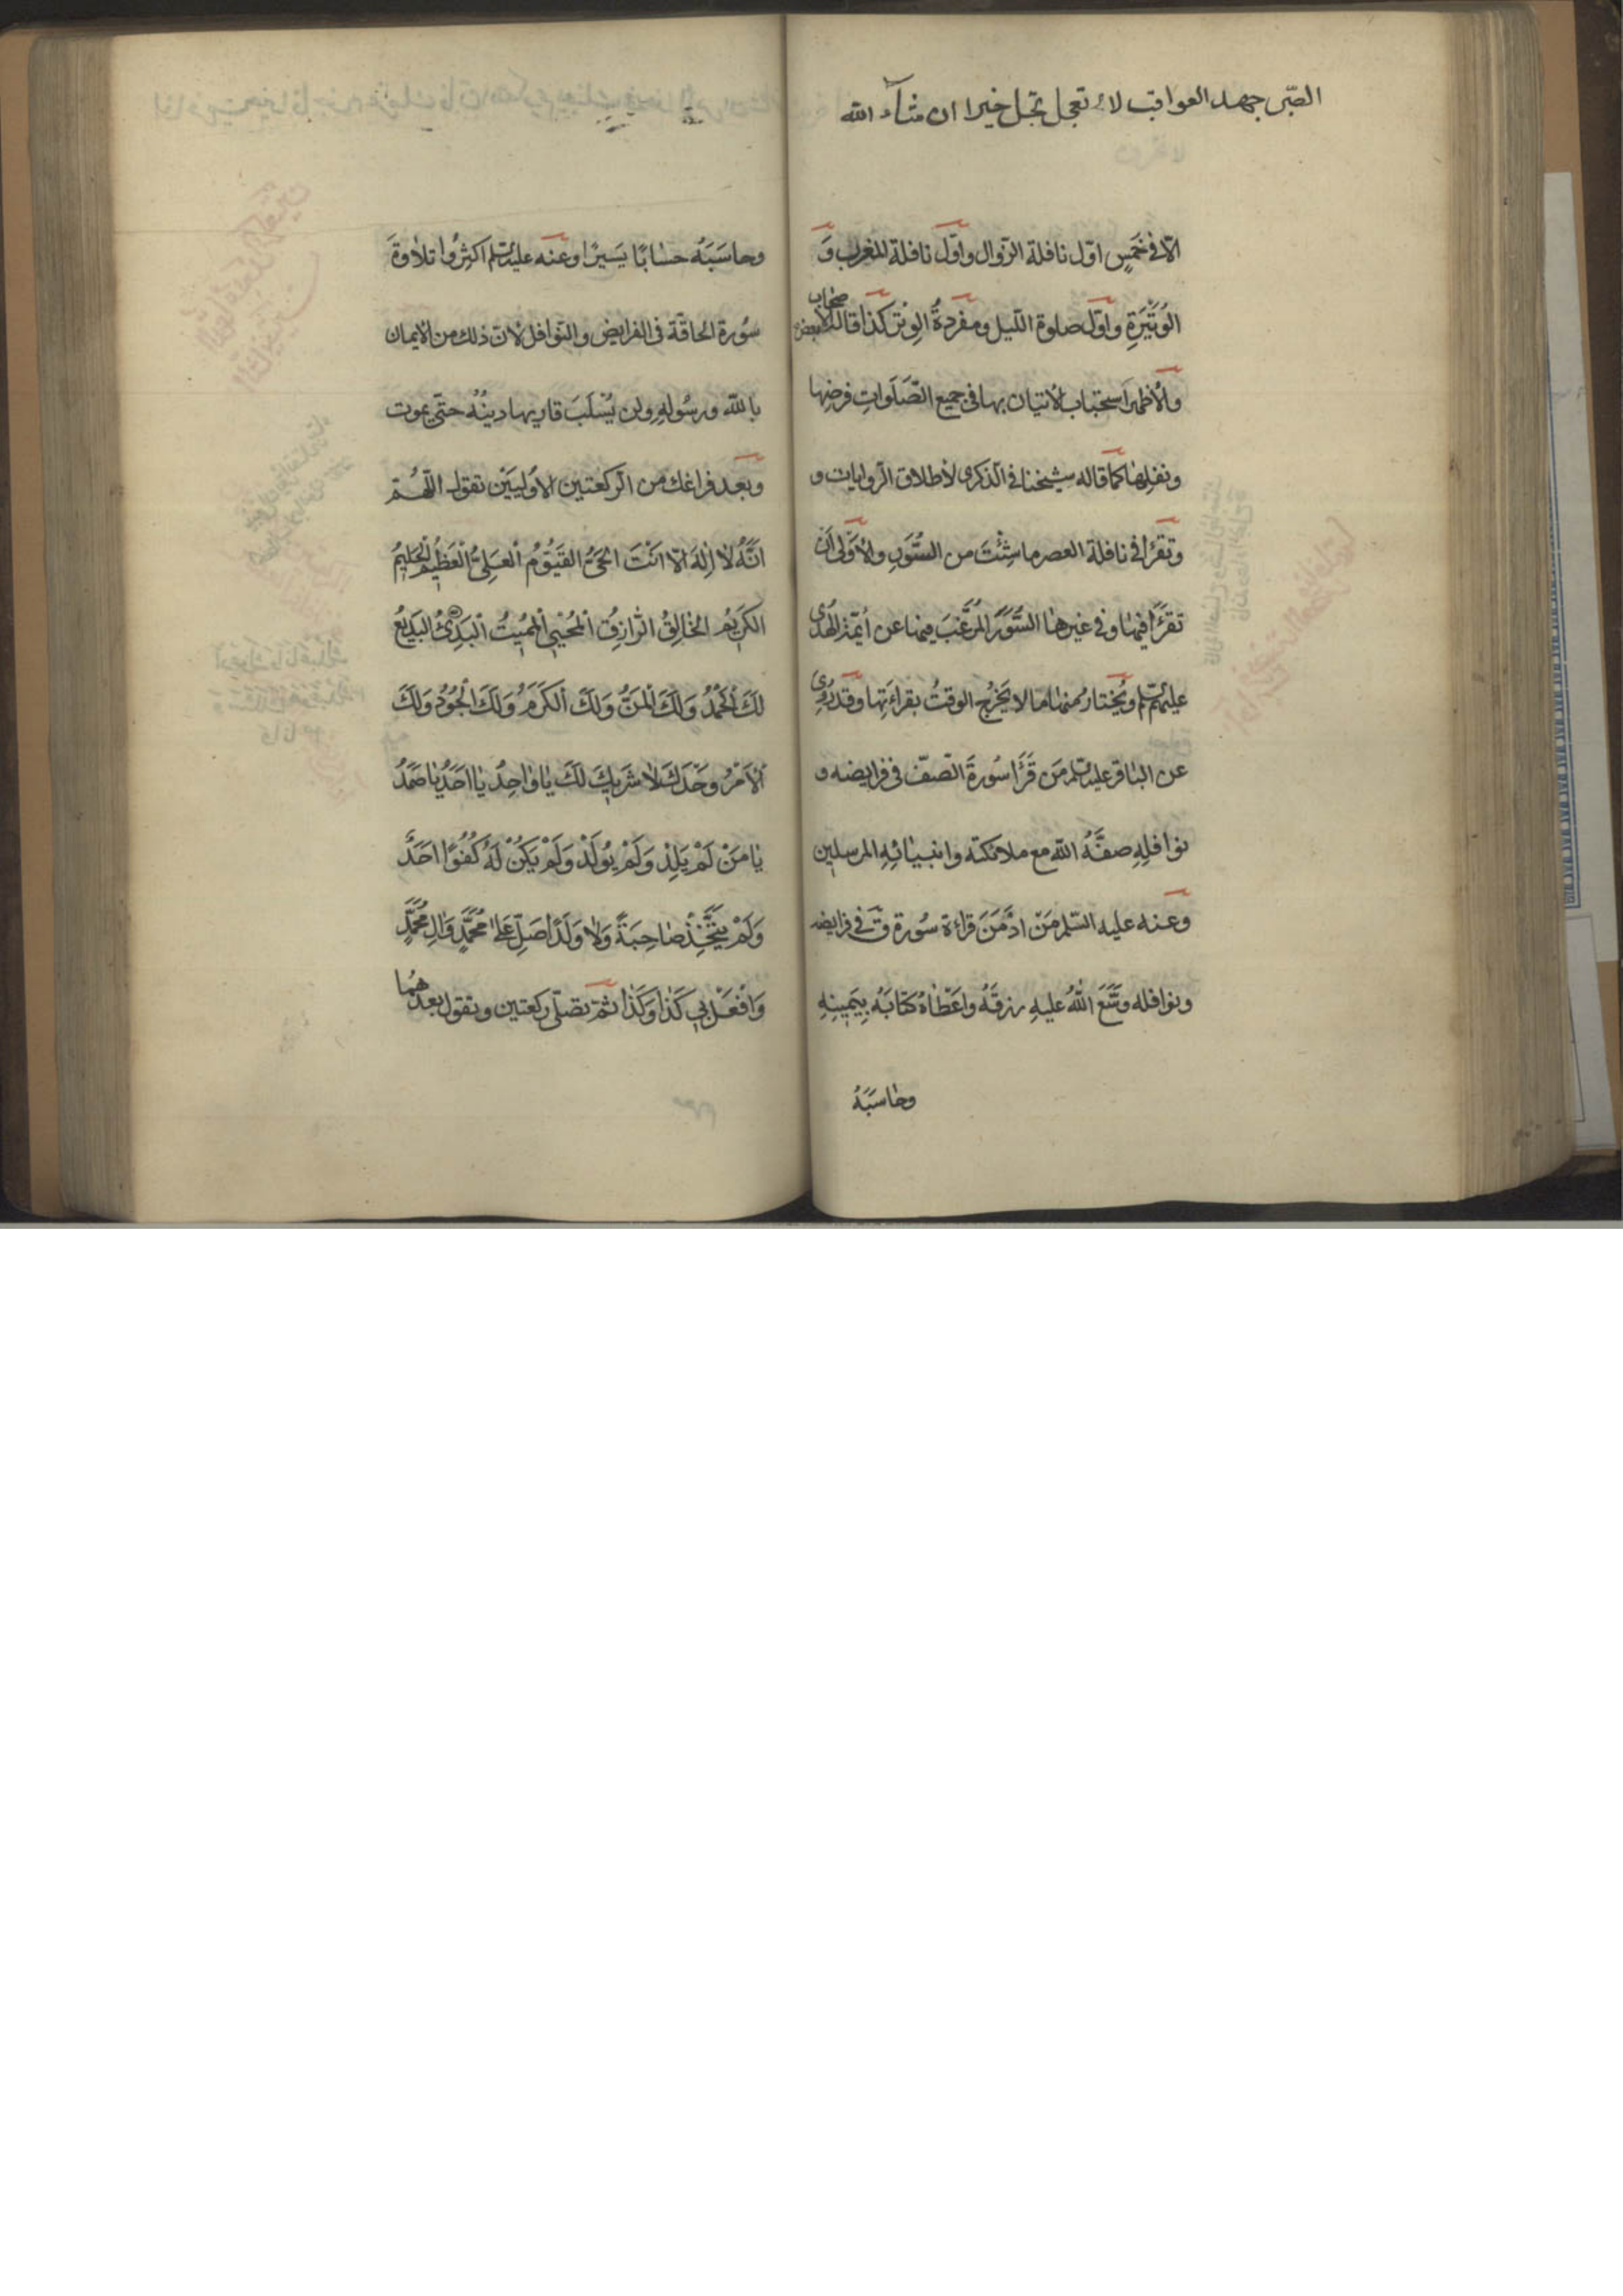 الصبر جهد العواقب لا تعجل تجل خيرا ان شاء الله
الّا في خَمسٍ اوّل نافلة الزّوال واوّل نافلة المغرب وَ
الوُتَيْرَةِ واوّل صلوة اللّيل ومفردةُ الوِتر كذا قاله بعض الاصحاب
والأظهر استحباب الأتيان بها في جميع الصَّلَواتِ فرضِها
ونفلِها كما قاله شيخنا في الذكرى لأطلاق الرّوايات و
وتقرُا في نافلة العصر ما شِئْتَ من السُّوَرِ والأَوْلى أن
تقرَا فيها وفي غيرها السُّوَرَ المُرغَّبَ فيها عن أئمّة الهُدى
عليهم السّلم ويُختار منها ما لا يَخرُج الوقتُ بقراءَتِها وقد رُوِيَ
عن الباقر عليه السّلم مَن قَرَأ سُورةَ الصفّ في فرايضه و
نوافلِهِ صفَّهُ الله مع ملائكته وانبيائِهِ المرسلين
وعنه عليه السّلم مَنْ ادْمَنَ قراءة سُورة ق في فرايضه
ونوافله وَسَّعَ اللهُ عليهِ رزقَهُ واعْطاهُ كتابَهُ بِيَمينِهِ
وحاسَبَهُ
وحاسَبَهُ حسابًا يَسيرًا وعنه عليه السّلم اكثِرُوا تلاوةَ
سُورة الحاقّة في الفرايض والنّوافل لانّ ذلك من الايمان
بالله ورسُولهِ ولن يُسْلَبَ قاريها دينُهُ حتّى يموت
وبَعد فراغك من الرّكعتين الأوليَيْن تقول اللّهُمّ
انَّهُ لا إلهَ الّا انْتَ الحَيُّ القَيُّومُ العَلِيُّ العَظيمُ الحَليمُ
الكَريمُ الخالِقُ الرّازِقُ المُحْيِي المُميتُ البَدِئُ البَديعُ
لَكَ الحَمْدُ وَلَكَ المَنُّ وَلَكَ الكَرَمُ وَلَكَ الجُودُ وَلَكَ
الأمْرُ وَحْدَكَ لا شَريكَ لَكَ يا واحِدُ يا احَدُ يا صَمَدُ
يا مَنْ لَمْ يَلِدْ وَلَمْ يُولَدْ وَلَمْ يَكُنْ لَهُ كُفُوًا احَدٌ
وَلَمْ يَتَّخِذْ صاحِبَةً وَلا وَلَدًا صَلِّ عَلى مُحَمَّدٍ وَالِ مُحَمَّدٍ
وَافْعَلْ بي كَذا وَكَذا ثمّ تصلّي ركعتين وتقول بعدهُما